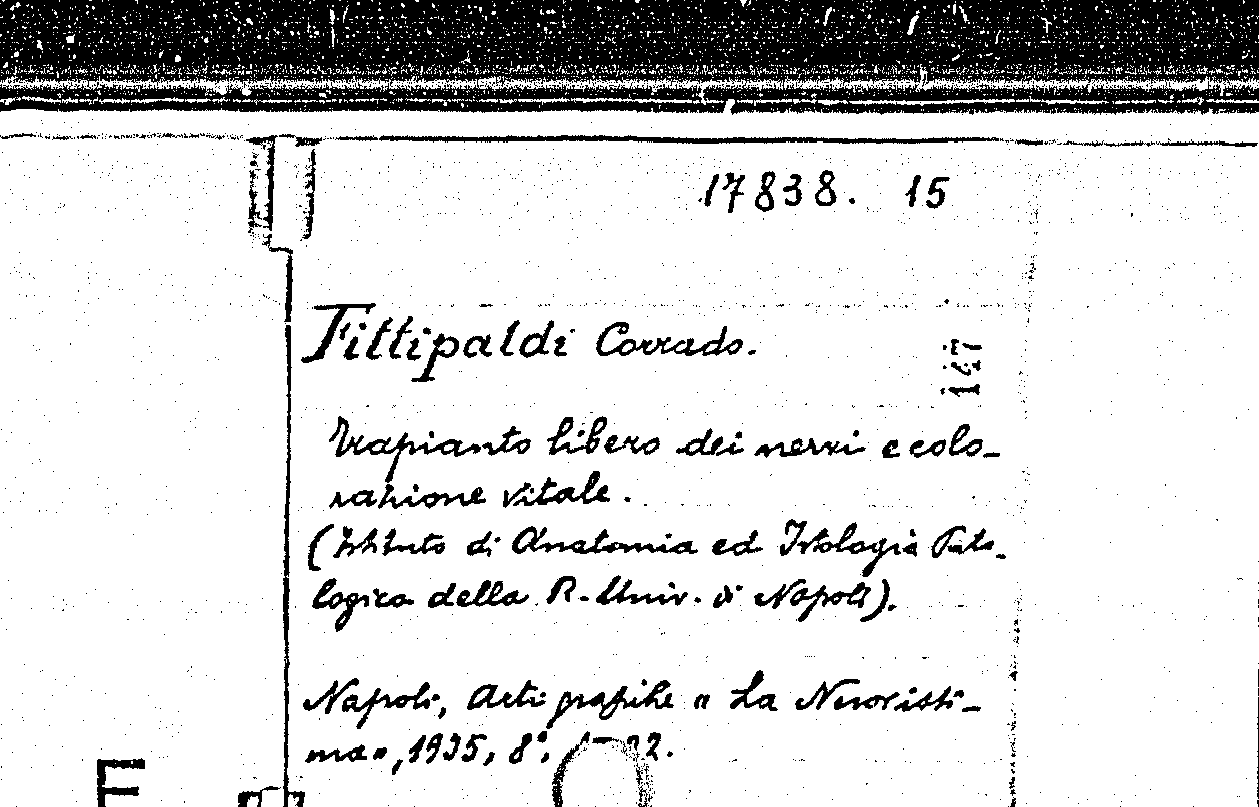 17838. 15
Fittipaldi Corrado.
147
Trapianto libero dei nervi e colo-
razione vitale.
(Istituto di Anatomia ed Istologia Pato-
logica della R. Univ. di Napoli).
Napoli, Arti grafiche "La Nuovissi-
ma", 1935, 8°.
E